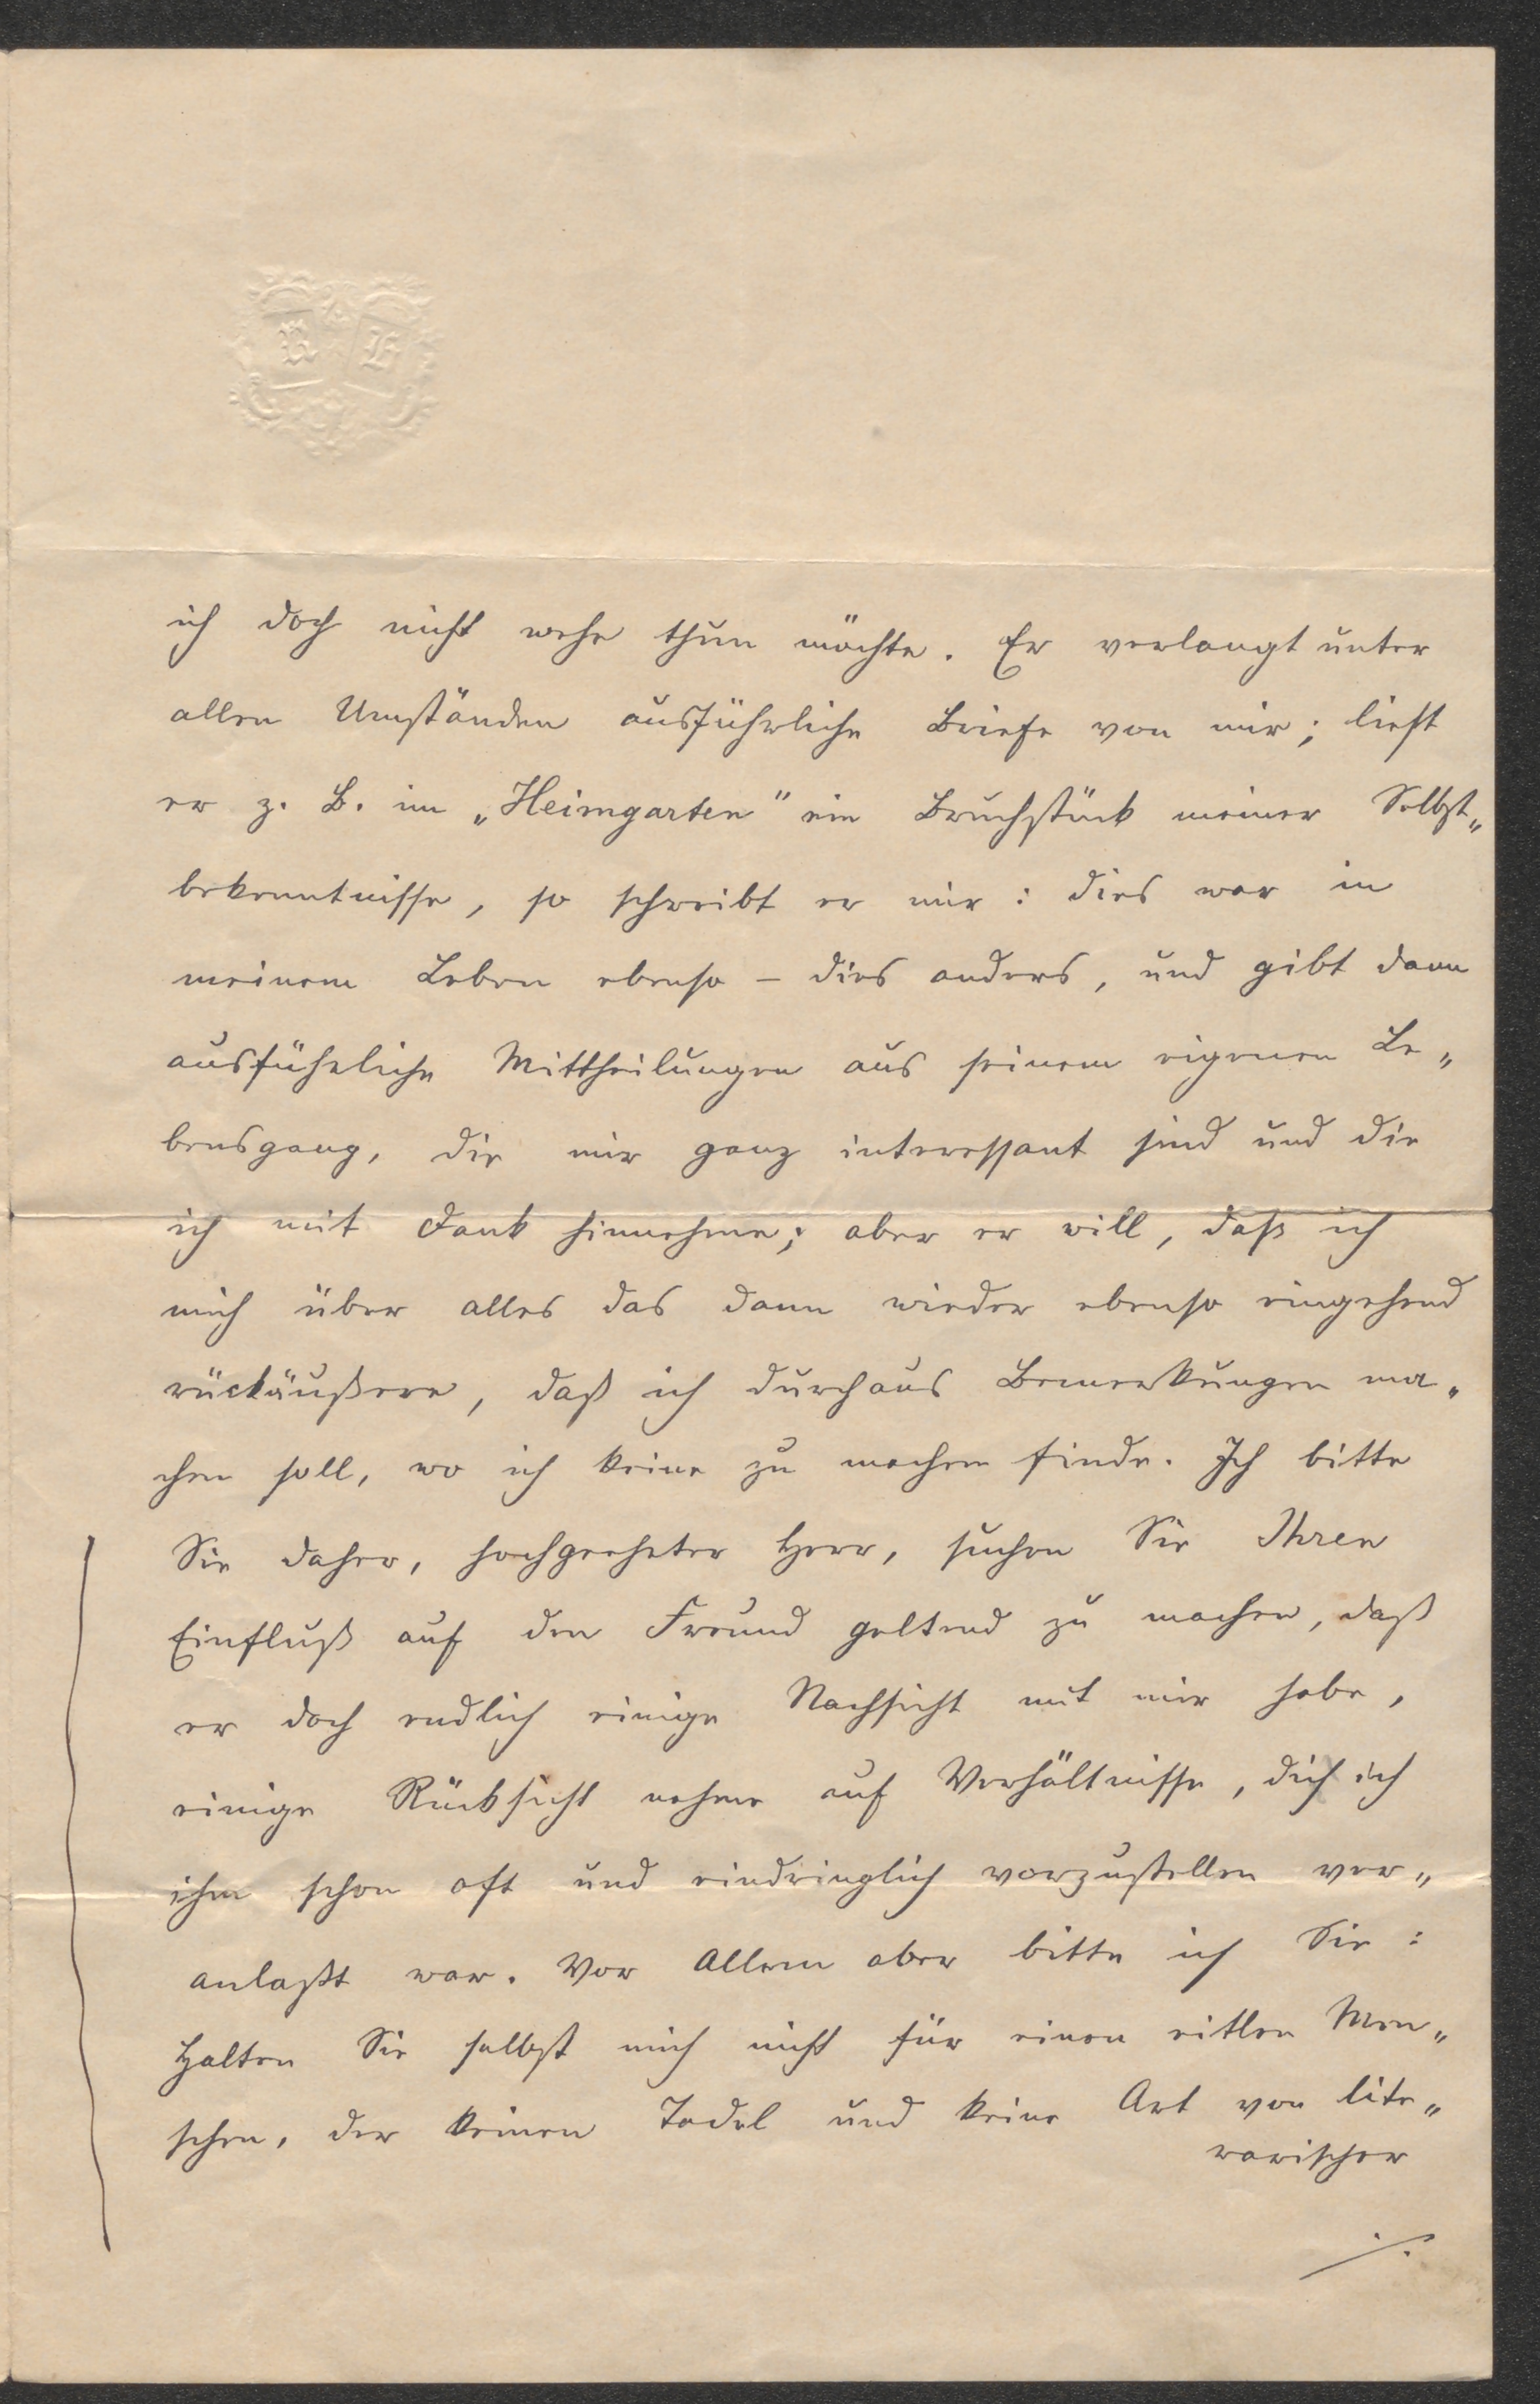 R H
ich doch nicht wehe thun möchte. Er verlangt unter
allen Umständen ausführliche Briefe von mir; liest
er z. B. im „Heimgarten" ein Bruchstück meiner Selbst„
bekenntnisse, so schreibt er mir: dies war in
meinem Leben ebenso – dies anders, und gibt dann
ausführliche Mittheilungen aus seinem eigenen Le„
bensgang, die mir ganz interessant sind und die
ich mit Dank hinnehme; aber er will, daß ich
mich über alles das dann wieder ebenso eingehend
rückäußere, daß ich durchaus Bemerkungen ma„
chen soll, wo ich keine zu machen finde. Ich bitte
Sie daher, hochgeehrter Herr, suchen Sie Ihren
Einfluß auf den Freund geltend zu machen, daß
er doch endlich einige Nachsicht mit mir habe,
einige Rücksicht nehme auf Verhältnisse, die ich
ihm schon oft und eindringlich vorzustellen ver„
anlaßt war. Vor Allem aber bitte ich Sie:
Halten Sie selbst mich nicht für einen eitlen Men„
schen, der keinen Tadel und keine Art von lite„
rarischer
./.